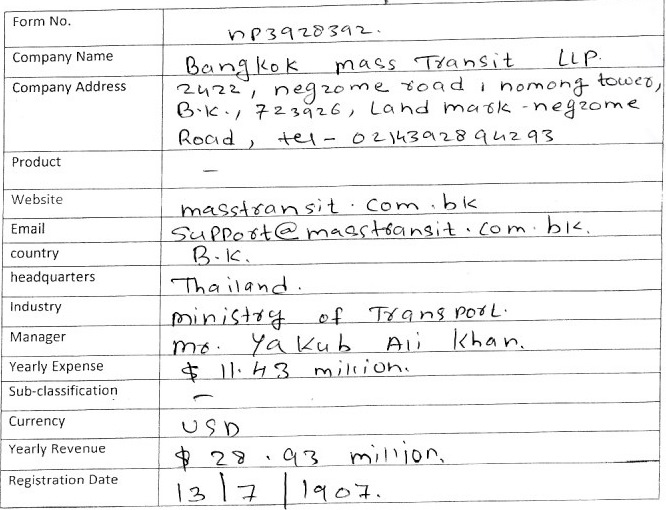 Form No. np3928392.
Company Name Bangkok mass Transit LLP.
Company Address 2422, negzome road, nomong tower,
B.K., 723926, Land mark - negzome
Road, tel - 0214392894293
Product -
Website masstransit.com.bk
Email Support@masstransit.com.bk.
country B.K.
headquarters Thailand.
Industry ministry of Transport.
Manager mr. Yakub Ali Khan.
Yearly Expense $ 11.43 million.
Sub-classification -
Currency USD
Yearly Revenue $ 28.93 million.
Registration Date 13/7/1907.